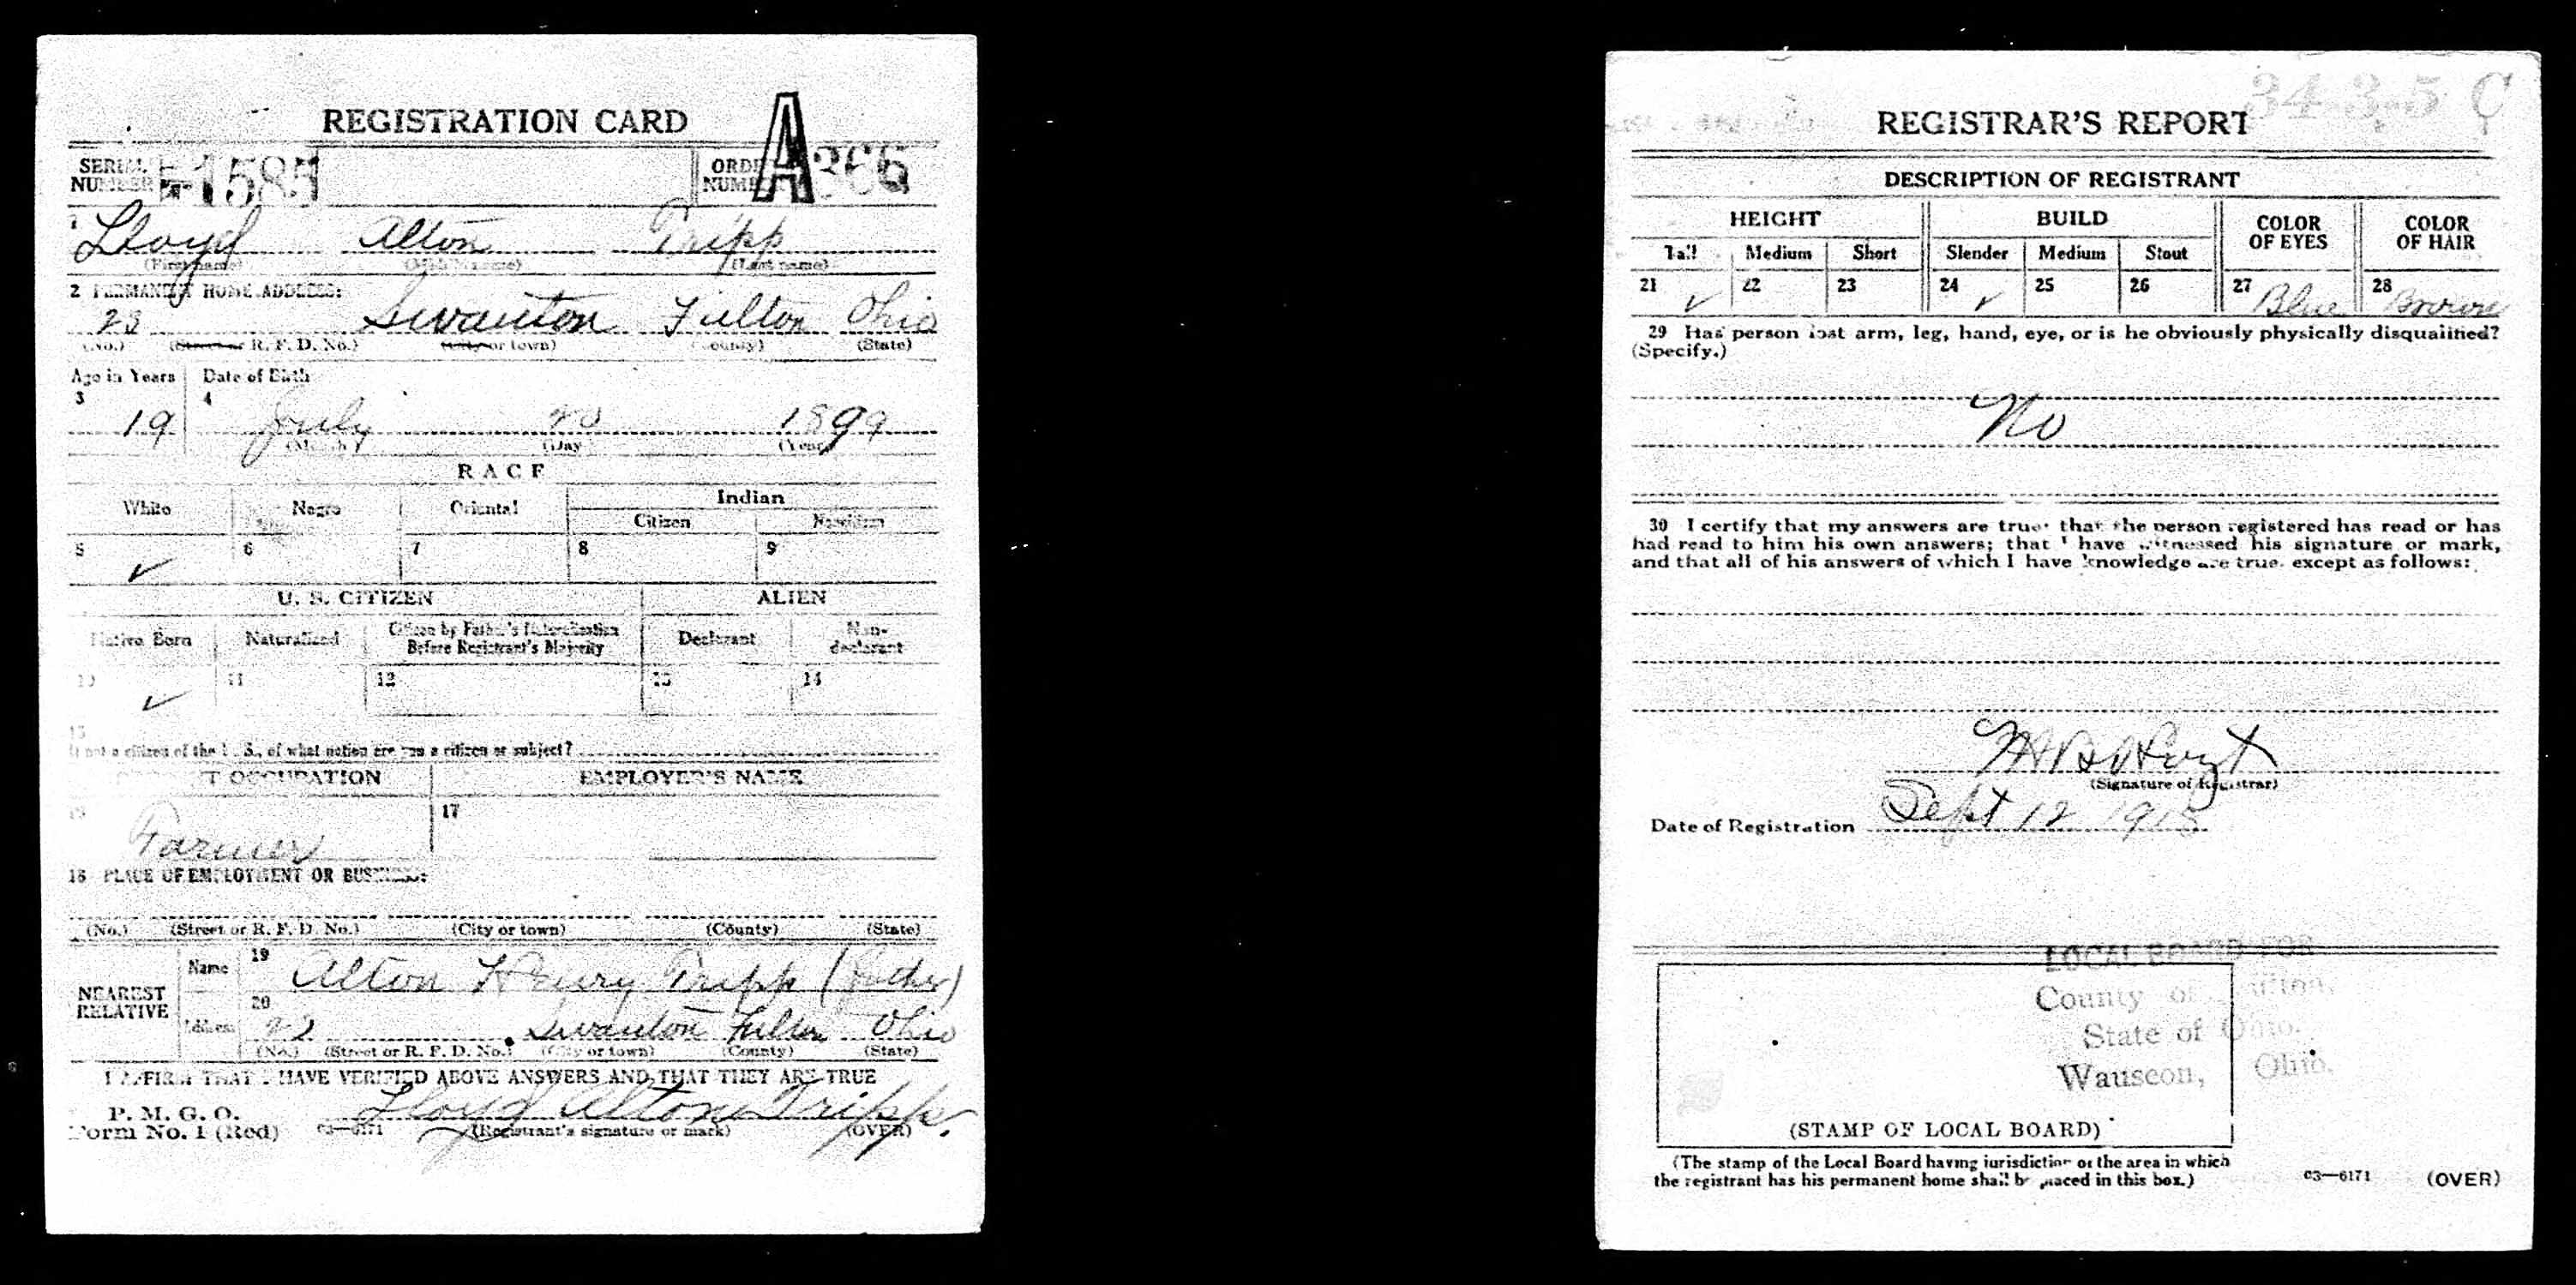 REGISTRATION CARD
SERIAL NUMBER 1585 ORDER NUMBER A 366
1 Lloyd Alton Tripp
(First name) (Middle name) (Last name)
2 PERMANENT HOME ADDRESS:
23 Swanton Fulton Ohio
(No.) (Street or R. F. D. No.) (City or town) (County) (State)
Age in Years Date of Birth
3 4
19 July 1899
(Month) (Day) (Year)
RACE
White Negro Oriental Indian
Citizen Noncitizen
5 6 7 8 9
✓
U. S. CITIZEN ALIEN
Native Born Naturalized Citizen by Father's Naturalization Before Registrant's Majority Declarant Non-declarant
10 11 12 13 14
✓
15
If not a citizen of the U. S., of what nation are you a citizen or subject?
PRESENT OCCUPATION EMPLOYER'S NAME
16 17
Farmer
18 PLACE OF EMPLOYMENT OR BUSINESS:
(No.) (Street or R. F. D. No.) (City or town) (County) (State)
NEAREST RELATIVE
Name 19 Alton Henry Tripp (Father)
Address 20 Swanton Fulton Ohio
(No.) (Street or R. F. D. No.) (City or town) (County) (State)
I AFFIRM THAT I HAVE VERIFIED ABOVE ANSWERS AND THAT THEY ARE TRUE
P. M. G. O.
Form No. 1 (Red) 03—6171 Lloyd Alton Tripp
(Registrant's signature or mark) (OVER)
34-3-5 C
REGISTRAR'S REPORT
DESCRIPTION OF REGISTRANT
HEIGHT BUILD COLOR OF EYES COLOR OF HAIR
Tall Medium Short Slender Medium Stout
21 ✓ 22 23 24 ✓ 25 26 27 Blue 28 Brown
29 Has person lost arm, leg, hand, eye, or is he obviously physically disqualified?
(Specify.)
No
30 I certify that my answers are true; that the person registered has read or has
had read to him his own answers; that I have witnessed his signature or mark,
and that all of his answers of which I have knowledge are true, except as follows:
(Signature of Registrar)
Date of Registration Sept 12 1918
LOCAL BOARD FOR
County of Fulton,
State of Ohio.
Wauseon, Ohio.
(STAMP OF LOCAL BOARD)
(The stamp of the Local Board having jurisdiction of the area in which
the registrant has his permanent home shall be placed in this box.)
03—6171 (OVER)